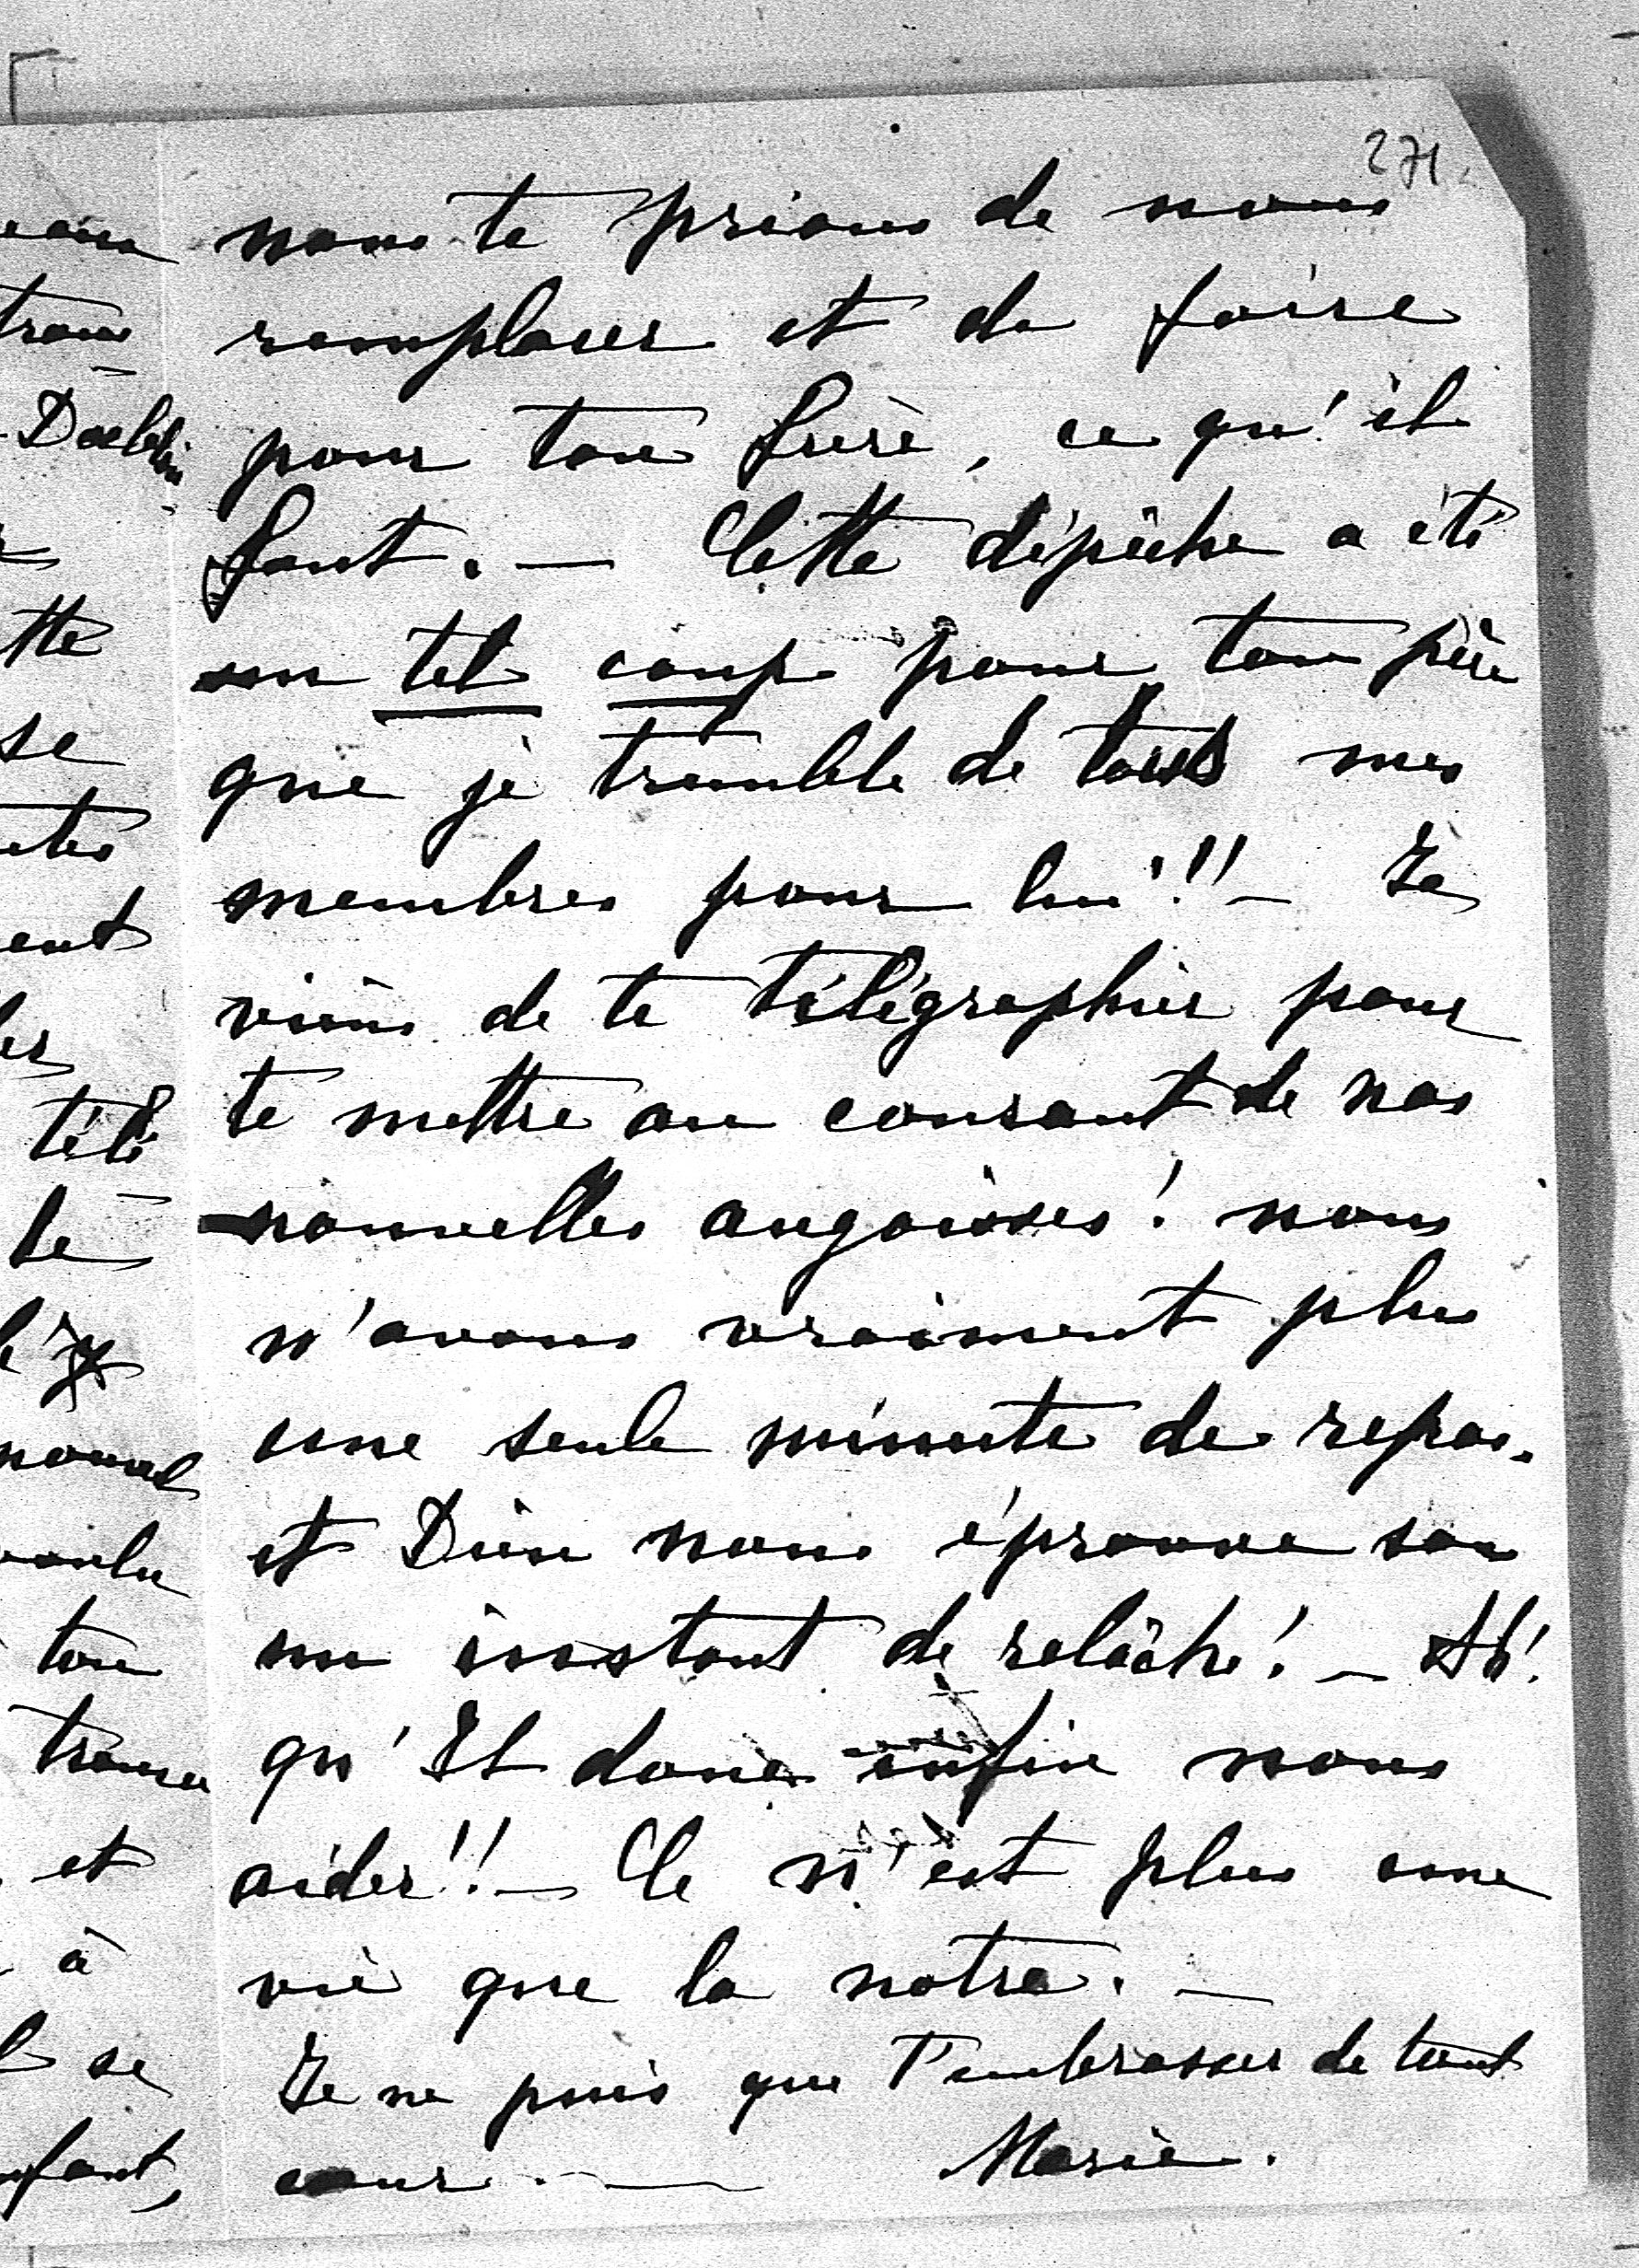 271.
nous te prions de nous
remplacer et de faire
pour ton frère, ce qu'il
faut. — Cette dépêche a été
un tel coup pour ton père
que je tremble de tous mes
membres pour lui!! — Je
viens de te télégraphier pour
te mettre au courant de nos
nouvelles angoisses! nous
n'avons vraiment plus
une seule minute de repos.
et Dieu nous éprouve sans
un instant de relâche! — Ah!
qu'Il donc enfin nous
aider!! — Ce n'est plus une
vie que la notre. —
Je ne puis que t'embrasser de tout
cœur. — Marie.
tte
se
ent
télé
le
voulu
ton
et
à
se